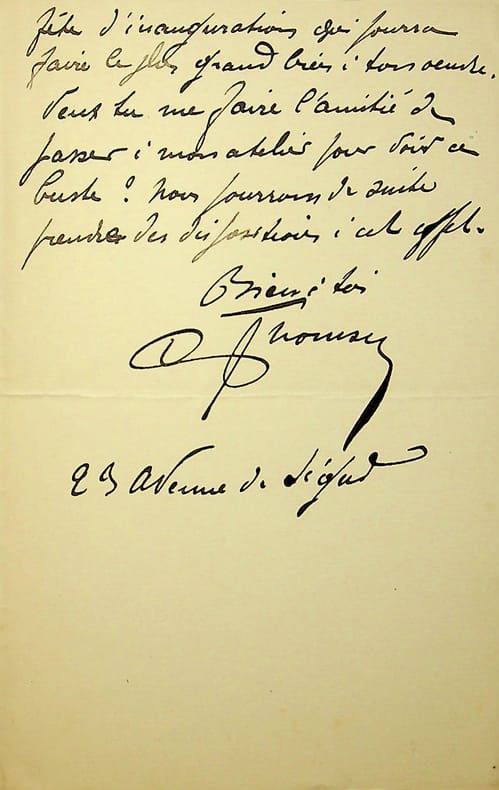 fête d'inauguration qui pourra
faire le plus grand bien à ton oeuvre.
Veux tu me faire l'amitié de
passer à mon atelier pour voir ce
buste ? Nous pourrons de suite
prendre des dispositions à cet effet.
Bien à toi
23 Avenue de Ségur